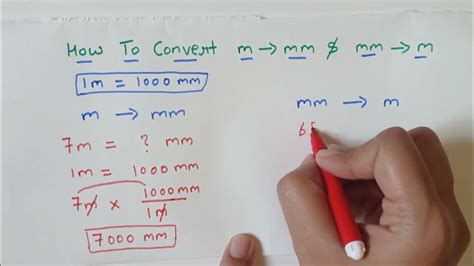 How To Convert m → mm & mm → m
1m = 1000 mm
m → mm
7m = ? mm
1m = 1000 mm
7m × 1000mm
1m
7000 mm
mm → m
6